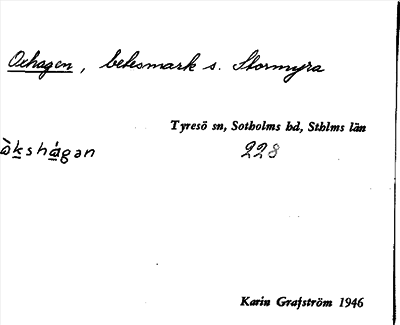 Oxhagen, betesmark s. Stormyra
Tyresö sn, Sotholms hd, Sthlms län
ò̀kshágan
228
Karin Grafström 1946